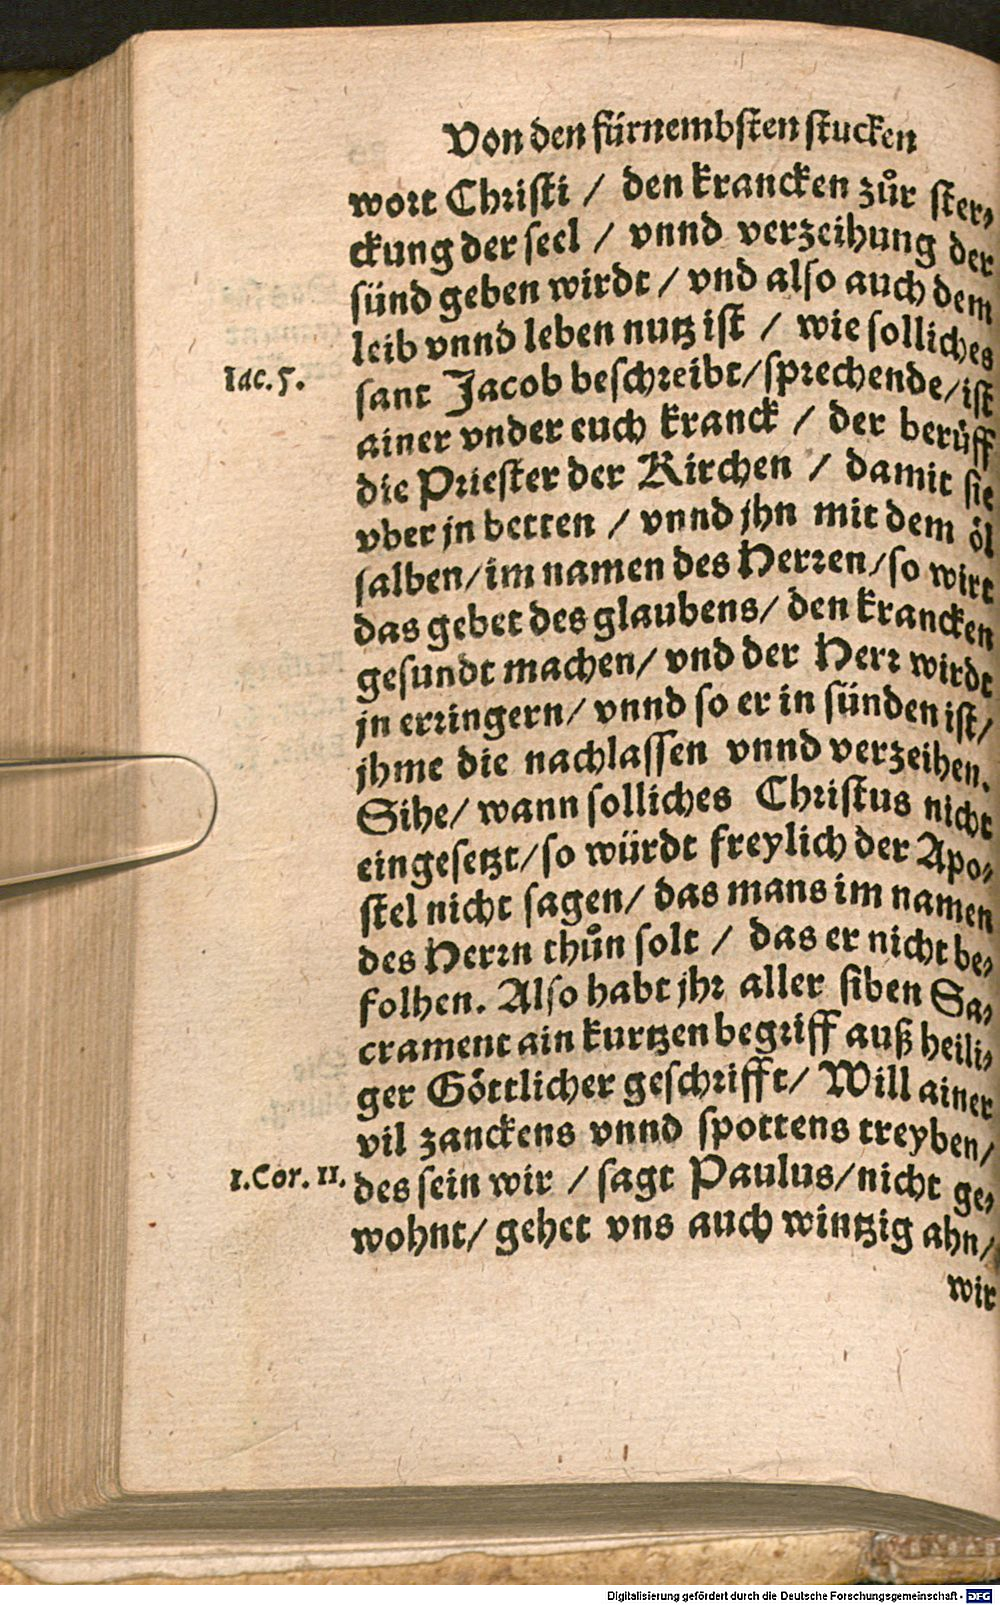 Von den fürnembsten stucken
wort Christi / den krancken zůr ster⸗
ckung der seel / vnnd verzeihung der
sünd geben wirdt / vnd also auch dem
leib vnnd leben nutz ist / wie solliches
Iac. 5.
sant Jacob beschreibt/sprechende/ist
ainer vnder euch kranck / der berůff
die Priester der Kirchen / damit sie
vber jn betten / vnnd jhn mit dem öl
salben/im namen des Herren/so wirt
das gebet des glaubens/ den krancken
gesundt machen/ vnd der Herr wirdt
jn erringern/ vnnd so er in sünden ist/
jhme die nachlassen vnnd verzeihen.
Sihe/ wann solliches Christus nicht
eingesetzt/so würdt freylich der Apo⸗
stel nicht sagen/ das mans im namen
des Herrn thůn solt / das er nicht be⸗
folhen. Also habt jhr aller siben Sa⸗
crament ain kurtzen begriff auß heili⸗
ger Göttlicher geschrifft/ Will ainer
vil zanckens vnnd spottens treyben/
1. Cor. 11.
des sein wir / sagt Paulus/nicht ge⸗
wohnt/ gehet vns auch wintzig ahn/
wir
Digitalisierung gefördert durch die Deutsche Forschungsgemeinschaft - DFG